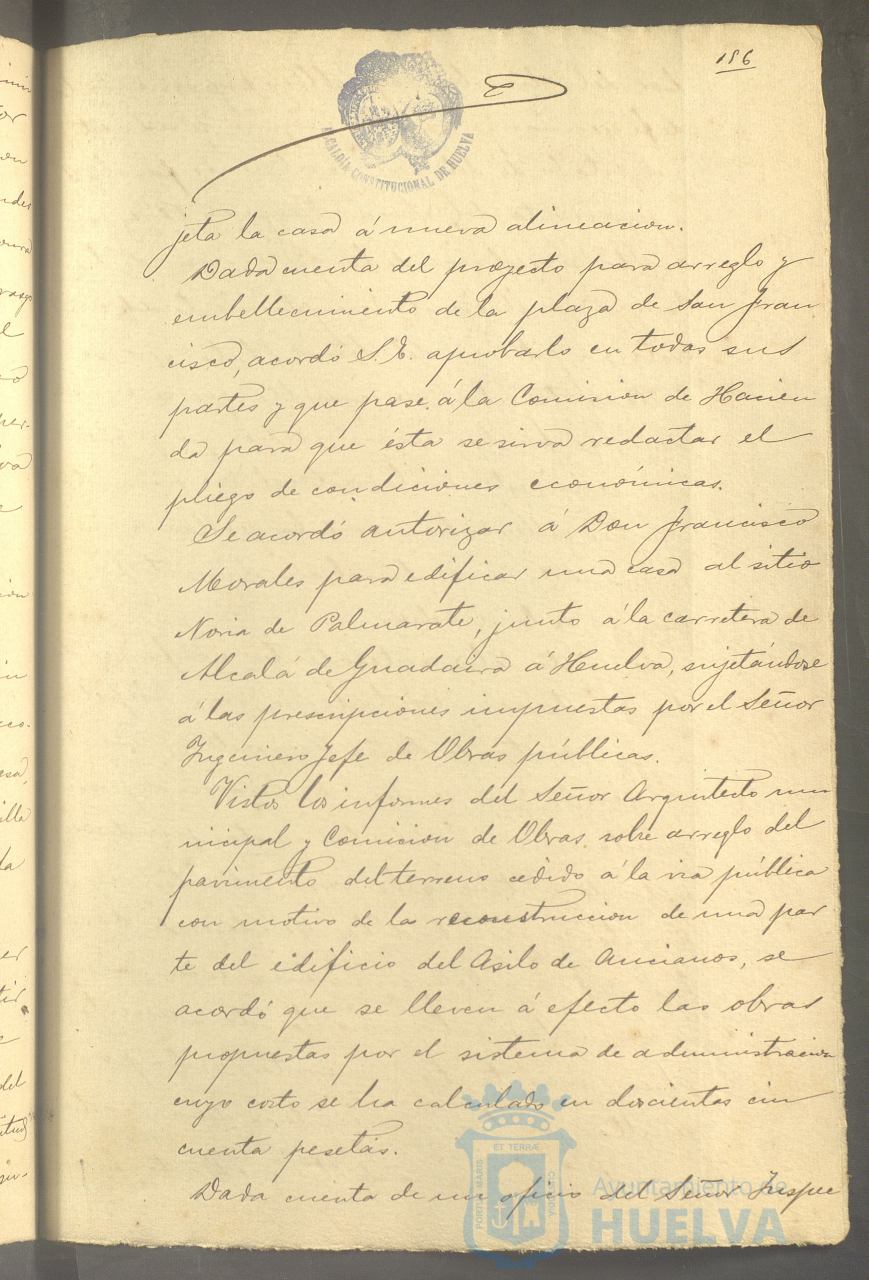 186
ALCALDÍA CONSTITUCIONAL DE HUELVA
jeta la casa á nueva alineacion.
Dada cuenta del proyecto para arreglo y
embellecimiento de la plaza de San Fran
cisco, acordó S.E. aprobarlo en todas sus
partes y que pase á la Comision de Hacien
da para que ésta se sirva redactar el
pliego de condiciones económicas.
Se acordó autorizar á Don Francisco
Morales para edificar una casa al sitio
Noria de Palmarate, junto á la carretera de
Alcalá de Guadaira á Huelva, sujetándose
á las prescripciones impuestas por el Señor
Ingeniero Jefe de Obras públicas.
Vistos los informes del Señor Arquitecto mu
nicipal y Comision de Obras, sobre arreglo del
pavimento del terreno cedido á la via pública
con motivo de la reconstruccion de una par
te del edificio del Asilo de Ancianos, se
acordó que se lleven á efecto las obras
propuestas por el sistema de administracion
cuyo costo se ha calculado en doscientas cin
cuenta pesetas.
Dada cuenta de un oficio del Señor Inspec
PORTUS MARIS ET TERRÆ CUSTODIA
Ayuntamiento de
HUELVA